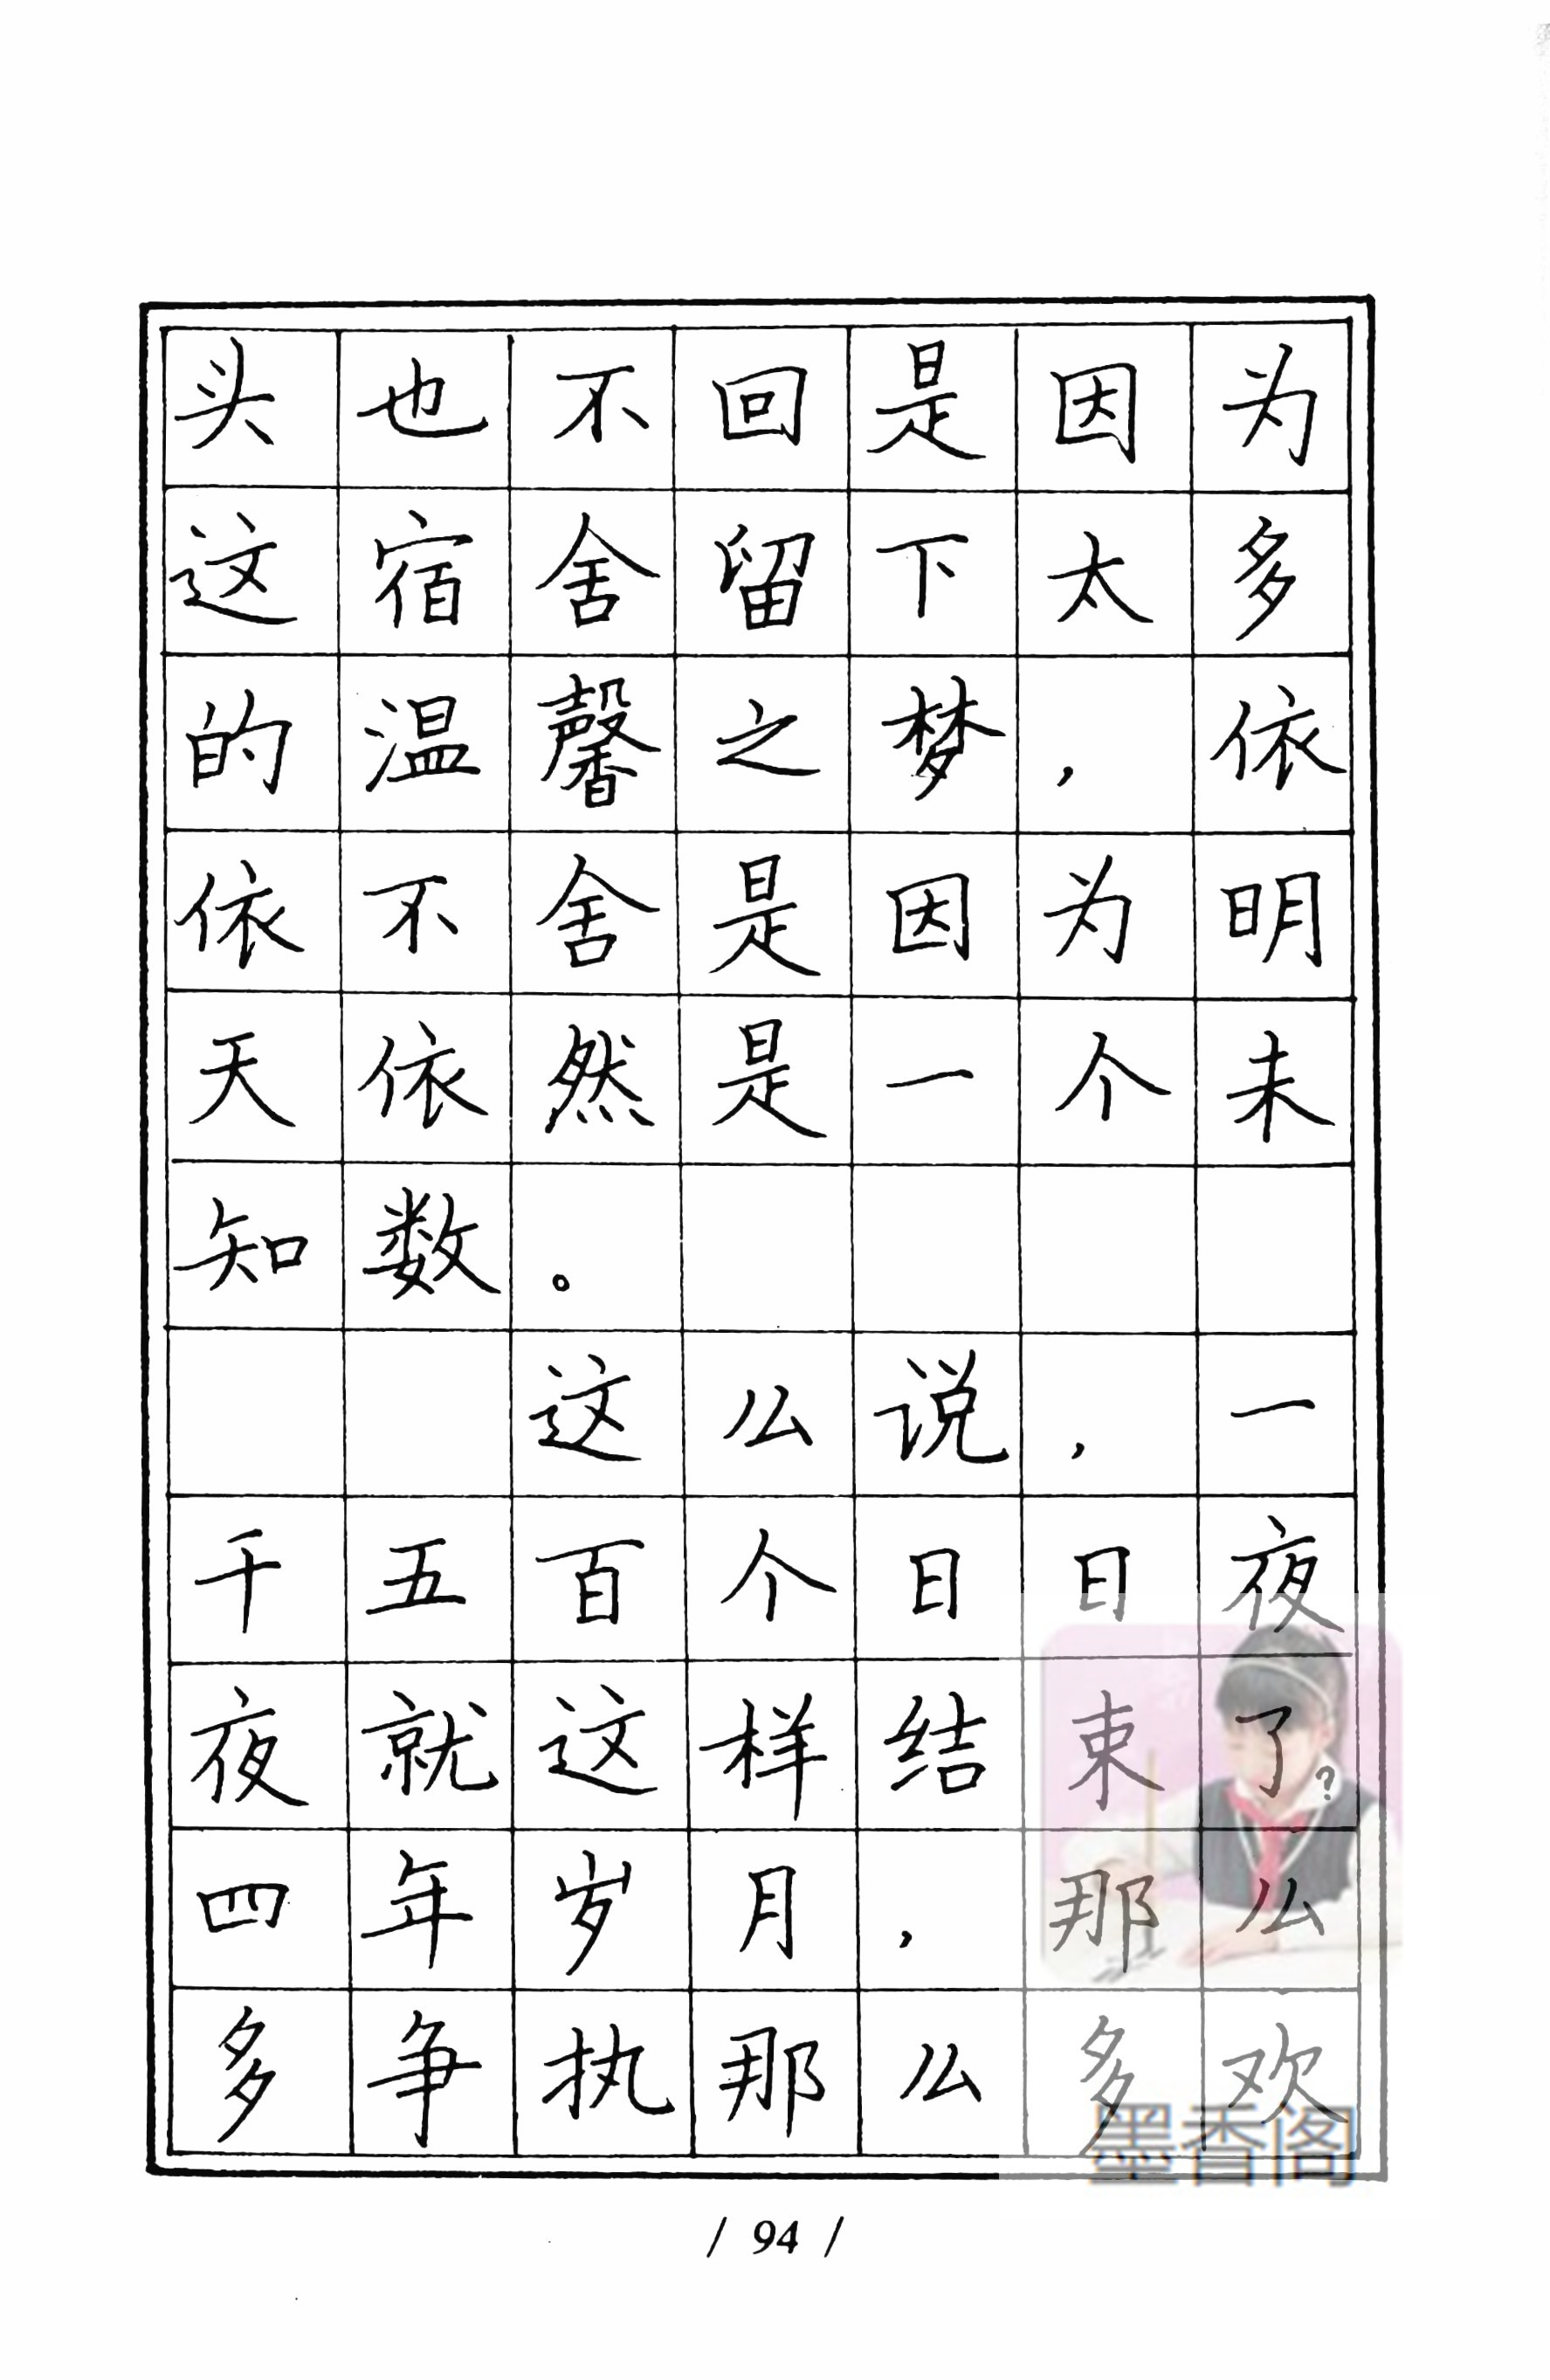 头也不回是因为
这宿舍留下太多
的温馨之梦，依
依不舍是因为明
天依然是一个未
知数。
这么说，一
千五百个日日夜
夜就这样结束了？
四年岁月，那么
多争执那么多欢
墨香阁
/ 94 /